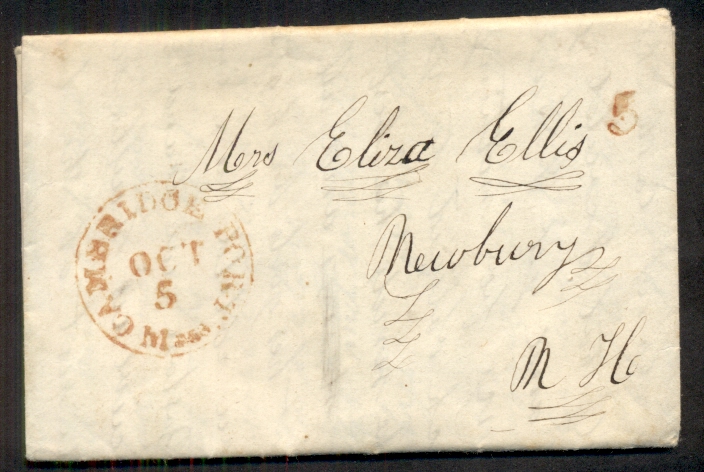 5
Mrs Eliza Ellis
Newbury
N H
CAMBRIDGE PORT
OCT
5
Mass